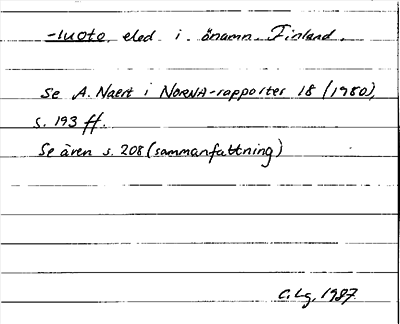 -luoto, eled i önamn. Finland.
Se A. Naert i NORNA-rapporter 18 (1980),
s. 193 ff.
Se även s. 208 (sammanfattning)
C. Lg, 1987